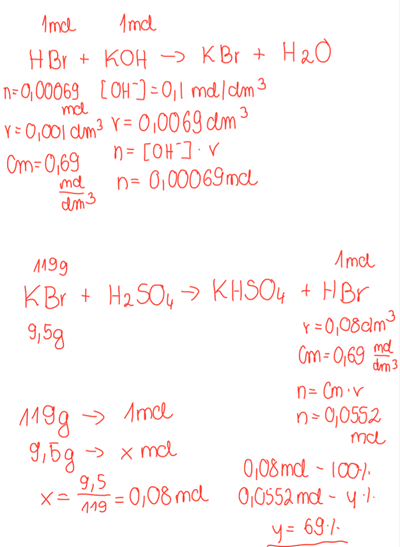 1mol 1mol
HBr + KOH → KBr + H2O
n=0,00069 mol [OH⁻]=0,1 mol/dm³
v=0,001dm³ v=0,0069dm³
Cm=0,69 mol/dm³ n=[OH⁻]·v
n=0,00069mol
119g 1mol
KBr + H2SO4 → KHSO4 + HBr
9,5g v=0,08dm³
Cm=0,69 mol/dm³
n=Cm·v
n=0,0552 mol
119g → 1mol
9,5g → x mol
x = 9,5/119 = 0,08mol
0,08mol - 100%
0,0552mol - y%
y = 69%